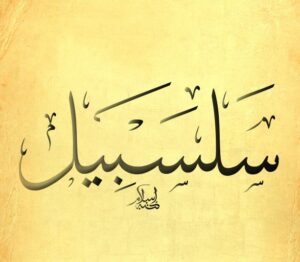 سَلسَبِيل